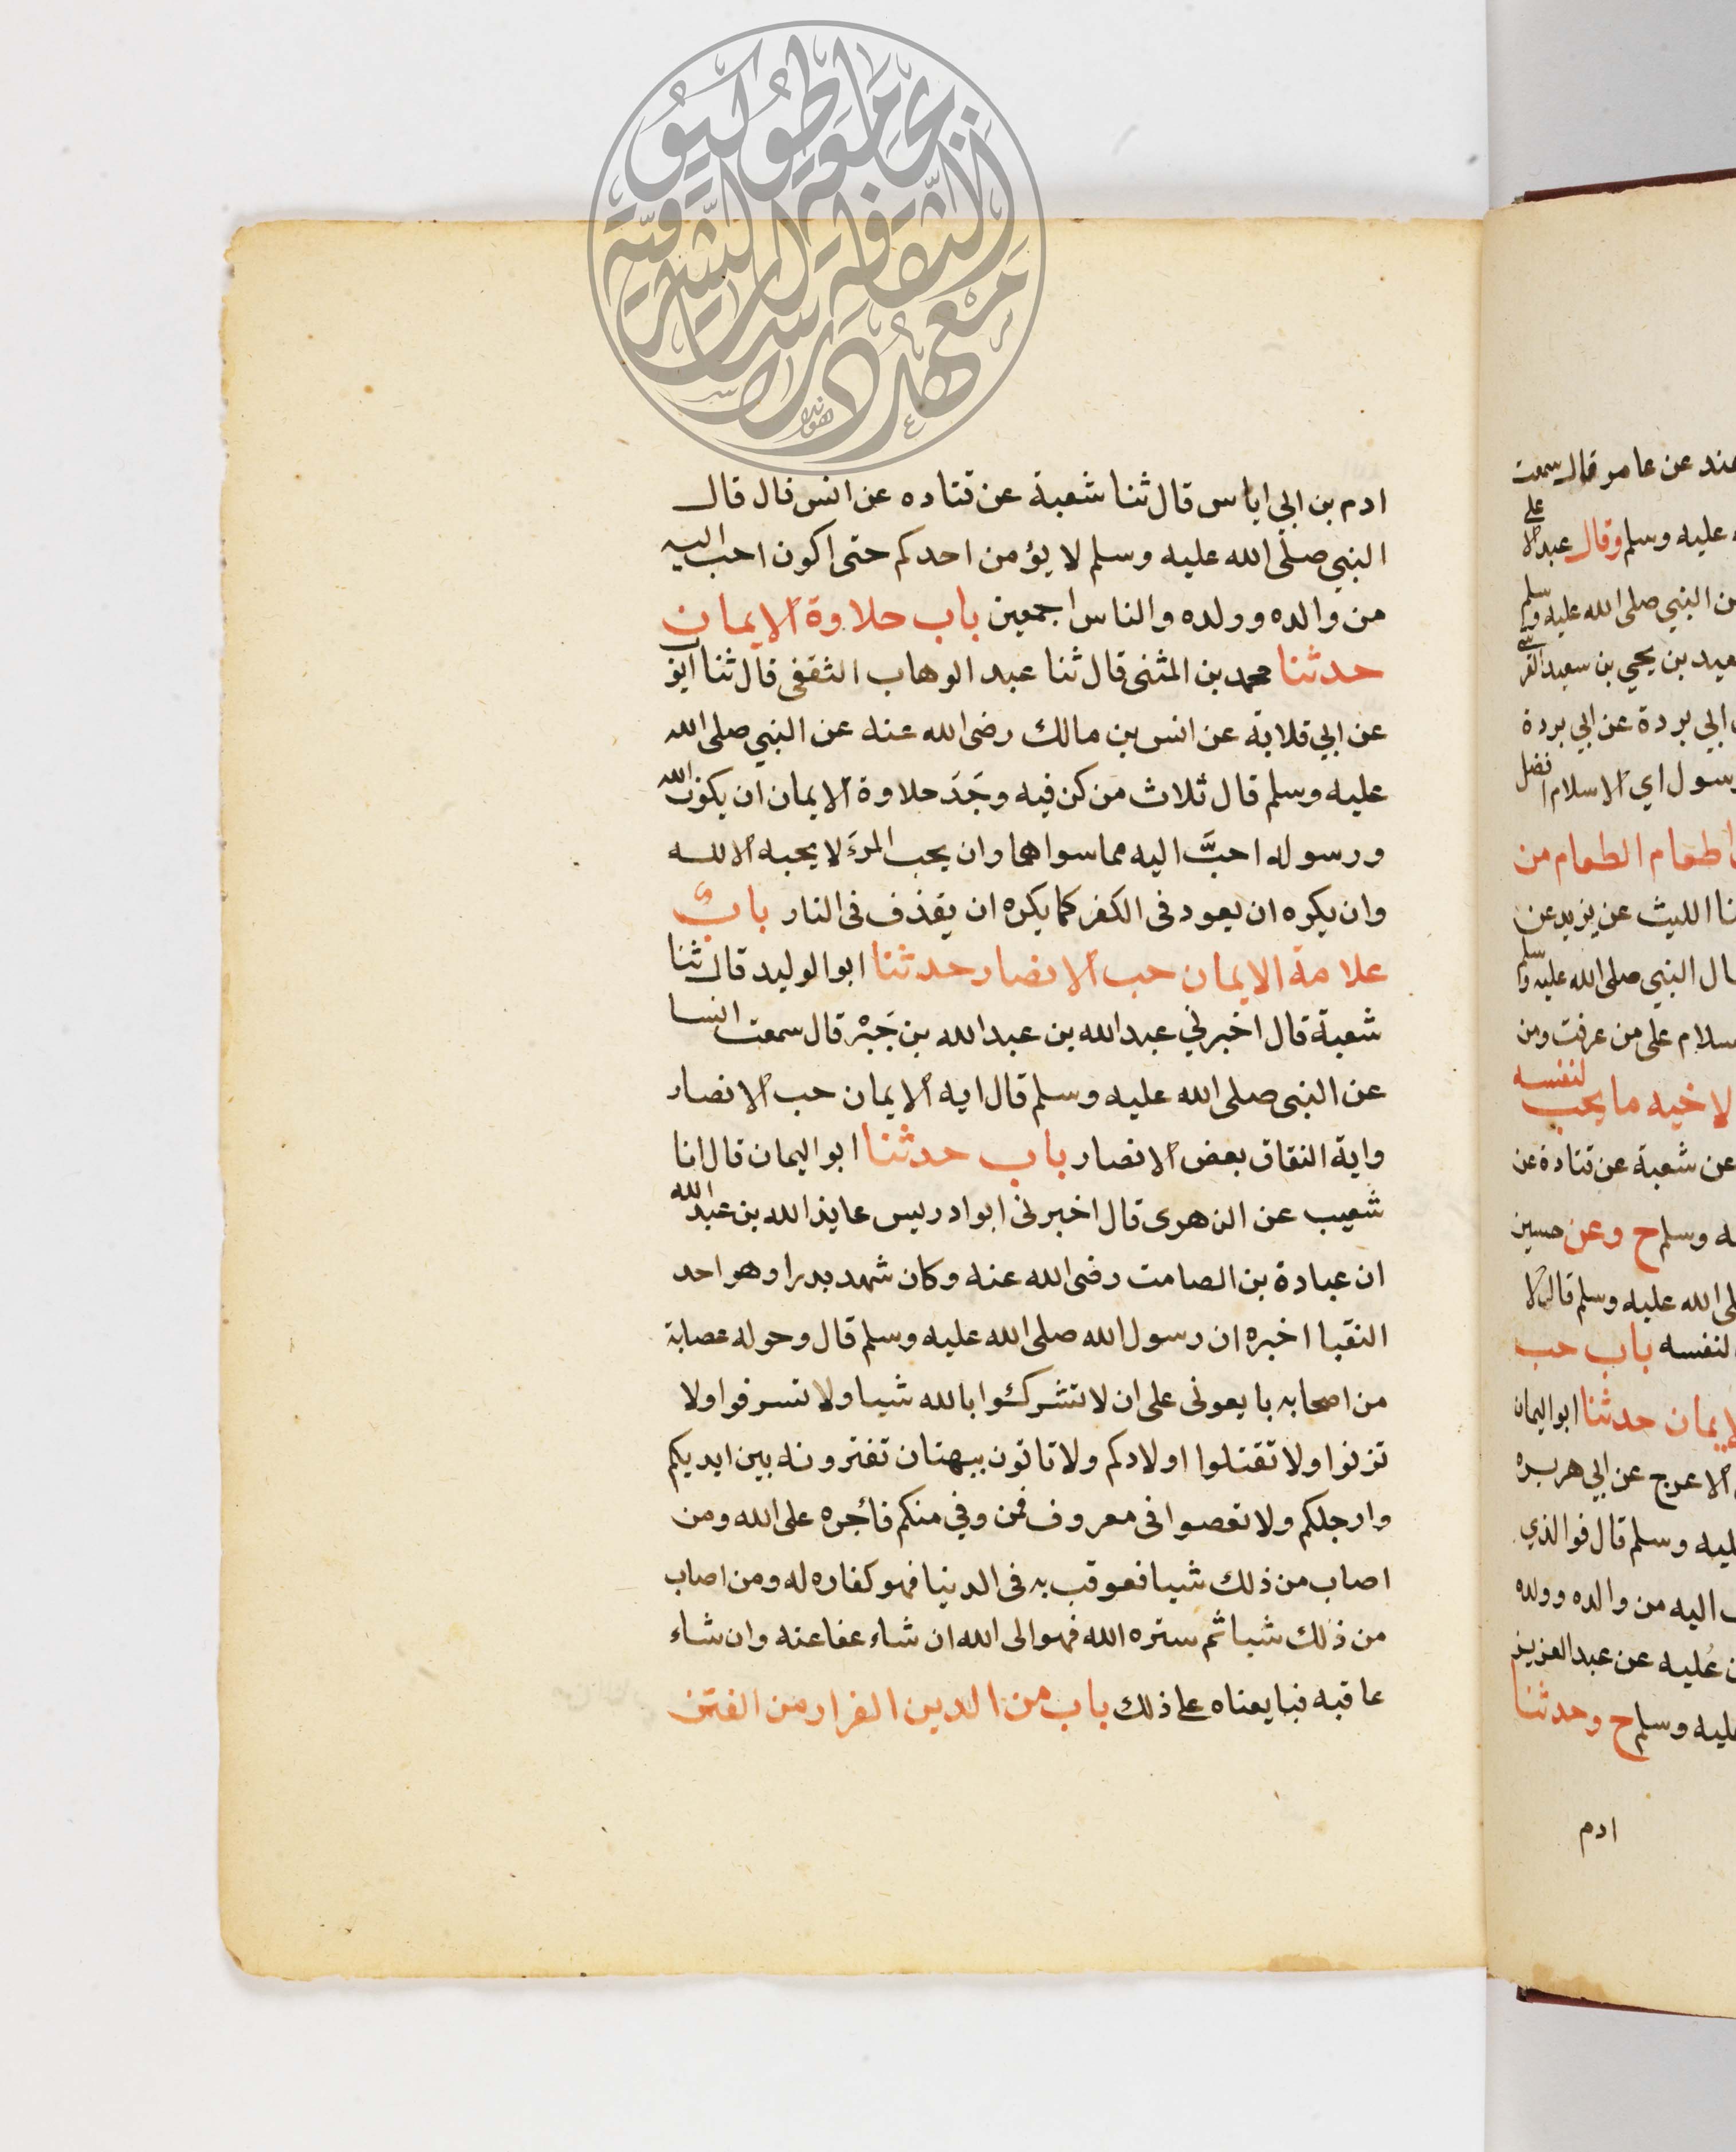 ادم بن ابي اياس قال ثنا شعبة عن قتاده عن انس قال قال
النبي صلى الله عليه وسلم لا يؤمن احدكم حتى اكون احب اليه
من والده وولده والناس اجمعين باب حلاوة الايمان
حدثنا محمد بن المثنى قال ثنا عبد الوهاب الثقفى قال ثنا ايوب
عن ابي قلابة عن انس بن مالك رضى الله عنه عن النبي صلى الله
عليه وسلم قال ثلاث من كن فيه وجَدَ حلاوة الايمان ان يكون الله
ورسوله احبَّ اليه مما سواهما وان يحب المرءَ لا يحبه الا لله
وان يكره ان يعود فى الكفر كما يكره ان يقذف فى النار بابٌ
علامة الايمان حب الانصار حدثنا ابو الوليد قال ثنا
شعبة قال اخبرني عبد الله بن عبد الله بن جَبْر قال سمعت انسا
عن النبي صلى الله عليه وسلم قال ايه الايمان حب الانصار
واية النفاق بغض الانصار باب حدثنا ابو اليمان قال انا
شعيب عن الزهرى قال اخبرنى ابو ادريس عايذ الله بن عبد الله
ان عبادة بن الصامت رضى الله عنه وكان شهد بدرا وهو احد
النقبا اخبره ان رسول الله صلى الله عليه وسلم قال وحوله عصابة
من اصحابه بايعونى على ان لا تشركوا بالله شيا ولا تسرقوا ولا
تزنوا ولا تقتلوا اولادكم ولا تاتون ببهتان تفترونه بين ايديكم
وارجلكم ولا تعصوا فى معروف فمن وفي منكم فأجره على الله ومن
اصاب من ذلك شيا فعوقب به فى الدنيا فهو كفاره له ومن اصاب
من ذلك شيا ثم ستره الله فهو الى الله ان شاء عفا عنه وان شاء
عاقبه فبايعناه على ذلك باب من الدين الفرار من الفتن
عند عن عامر قال سمعت
عليه وسلم وقال عبد الاعلى
النبي صلى الله عليه وسلم
بن يحيي بن سعيد القرشي
ابي بردة عن ابي بردة
رسول اي الاسلام افضل
اطعام الطعام من
الليث عن يزيد عن
النبي صلى الله عليه وسلم
على من عرفت ومن
لاخيه ما يحب لنفسه
عن شعبة عن قتادة عن
وسلم ح وعن حسين
الله عليه وسلم قال لا
لنفسه باب حب
حدثنا ابو اليمان
الاعرج عن ابي هريره
وسلم قال فوالذي
اليه من والده وولده
عُليه عن عبد العزيز
وسلم ح وحدثنا
ادم
معهد دراسات الثقافة الشرقية بجامعة طوكيو